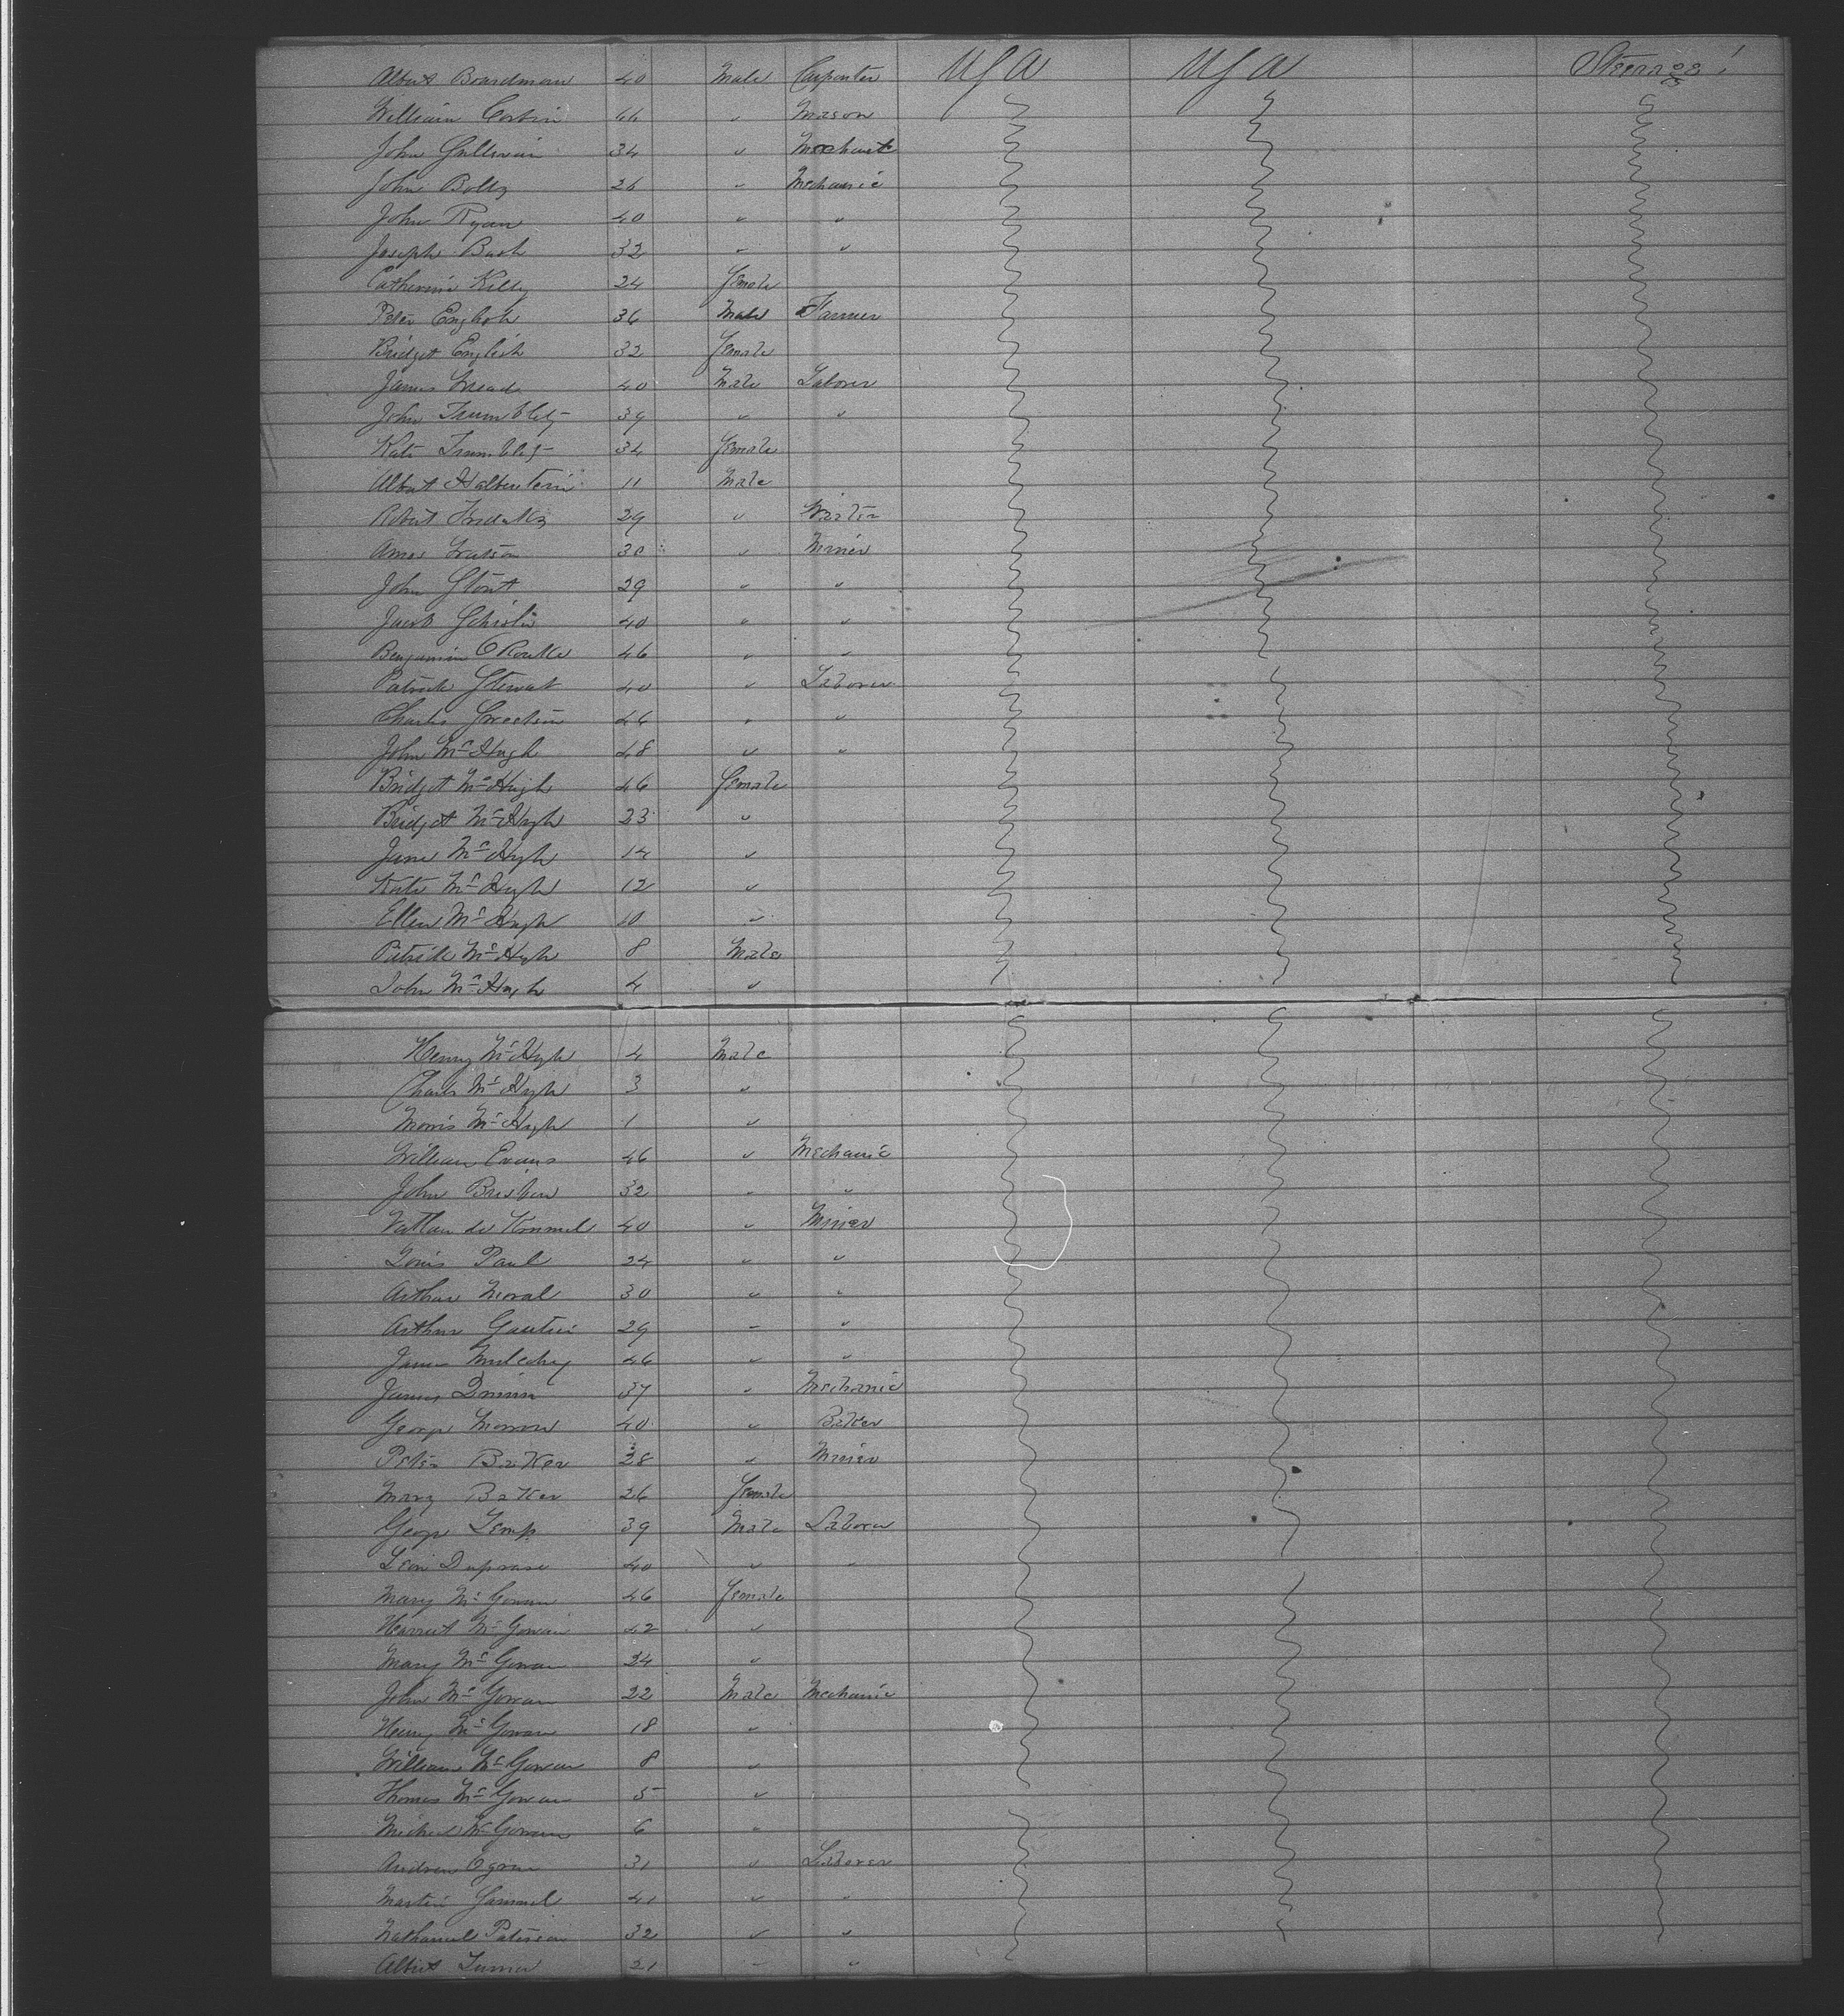 Albert Boardman 40 Male Carpenter USA USA Steerage
William Corbin 44 " Mason
John Sullivan 34 " Merchant
John Boltz 26 " Mechanic
John Ryan 40 " "
Joseph Bush 32 " "
Catherine Kelly 24 Female
Peter English 36 Male Farmer
Bridget English 32 Female
James Mead 40 Male Laborer
John Trumbley 39 " "
Kate Trumbley 34 Female
Albert 11 Male
Robert 29 " Waiter
Amos Watson 30 " Miner
John Stout 29 " "
Jacob 40 " "
Benjamin O Rourke 46 " "
Patrick Stewart 40 " Laborer
Charles 46 " "
John McHugh 48 " "
Bridget McHugh 46 Female
Bridget McHugh 23 "
Jane McHugh 14 "
Kate McHugh 12 "
Ellen McHugh 10 "
Patrick McHugh 8 Male
John McHugh 4 "
Henry McHugh 4 Male
Charles McHugh 3 "
Morris McHugh 1 "
William Evans 46 " Mechanic
John Brisben 32 " "
de 40 " Miner
Louis Paul 24 " "
Arthur Moral 30 " "
Arthur Gautier 29 " "
James Mulcahy 46 " "
James 37 " Mechanic
George Morrow 40 " Baker
Peter Baker 28 " Miner
Mary Baker 26 Female
George Lemp 39 Male Laborer
Leon 40 " "
Mary McGowan 46 Female
Harriet McGowan 42 "
Mary McGowan 24 "
John McGowan 22 Male Mechanic
Henry McGowan 18 "
William McGowan 8 "
Thomas McGowan 5 "
Michael McGowan 6 "
Andrew 31 " Laborer
Martin 41 " "
Nathaniel Paterson 32 " "
Albert Turner 21 " "